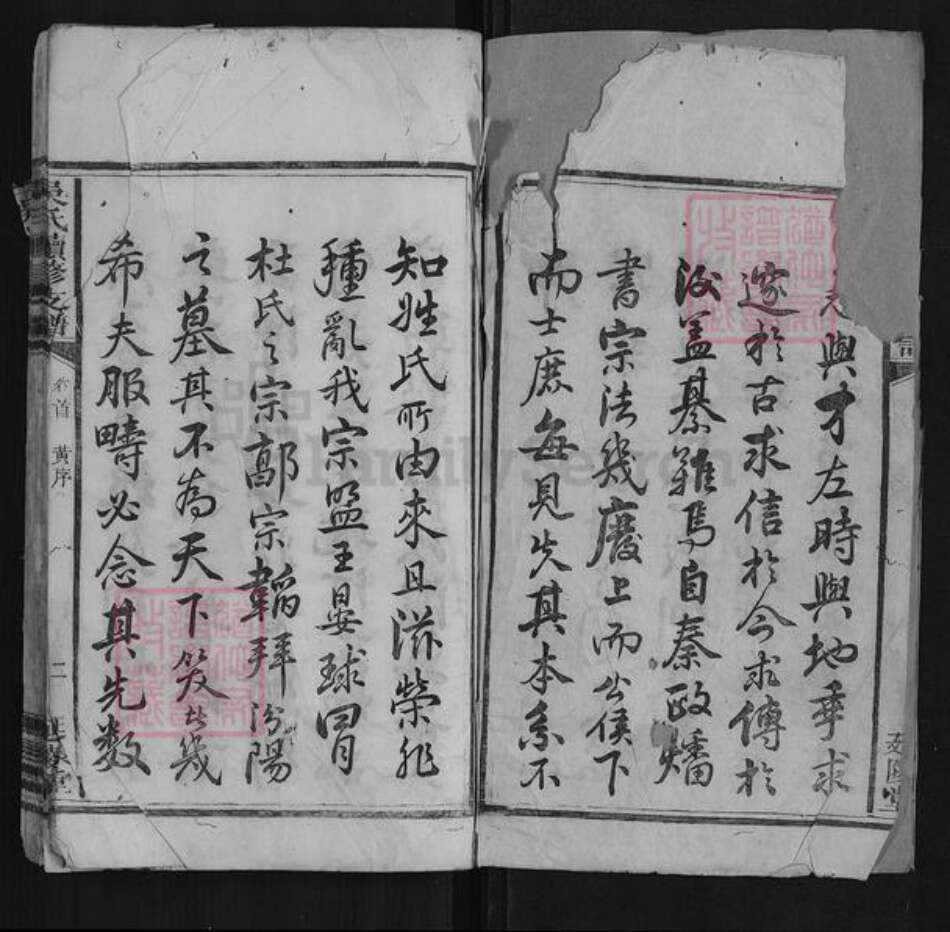 與才左時與地乖求
邃於古求信於今求傳於
後蓋綦難焉自秦政燔
書宗法幾廢上而公侯下
而士庶每見失其本系不
知姓氏所由來且滋榮非
種亂我宗盟王晏球冒
杜氏之宗郭宗韜拜汾陽
之墓其不為天下笑者幾
希夫服疇必念其先數
吳氏續修支譜
卷首 黃序
二
FamilySearch